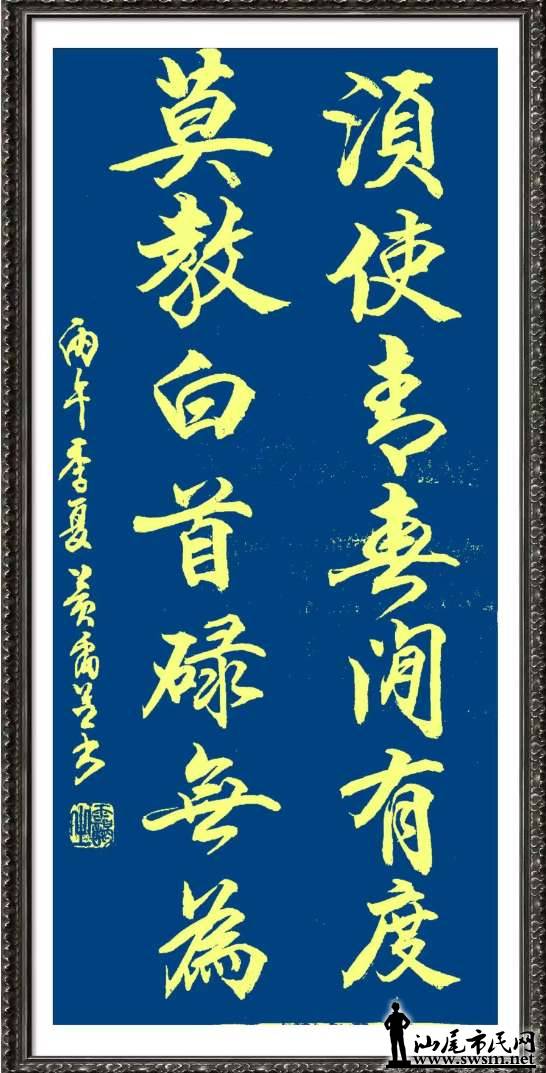 須使青春閒有度
莫教白首碌無為
丙午季夏黃
书
汕尾市民网
www.swsm.net